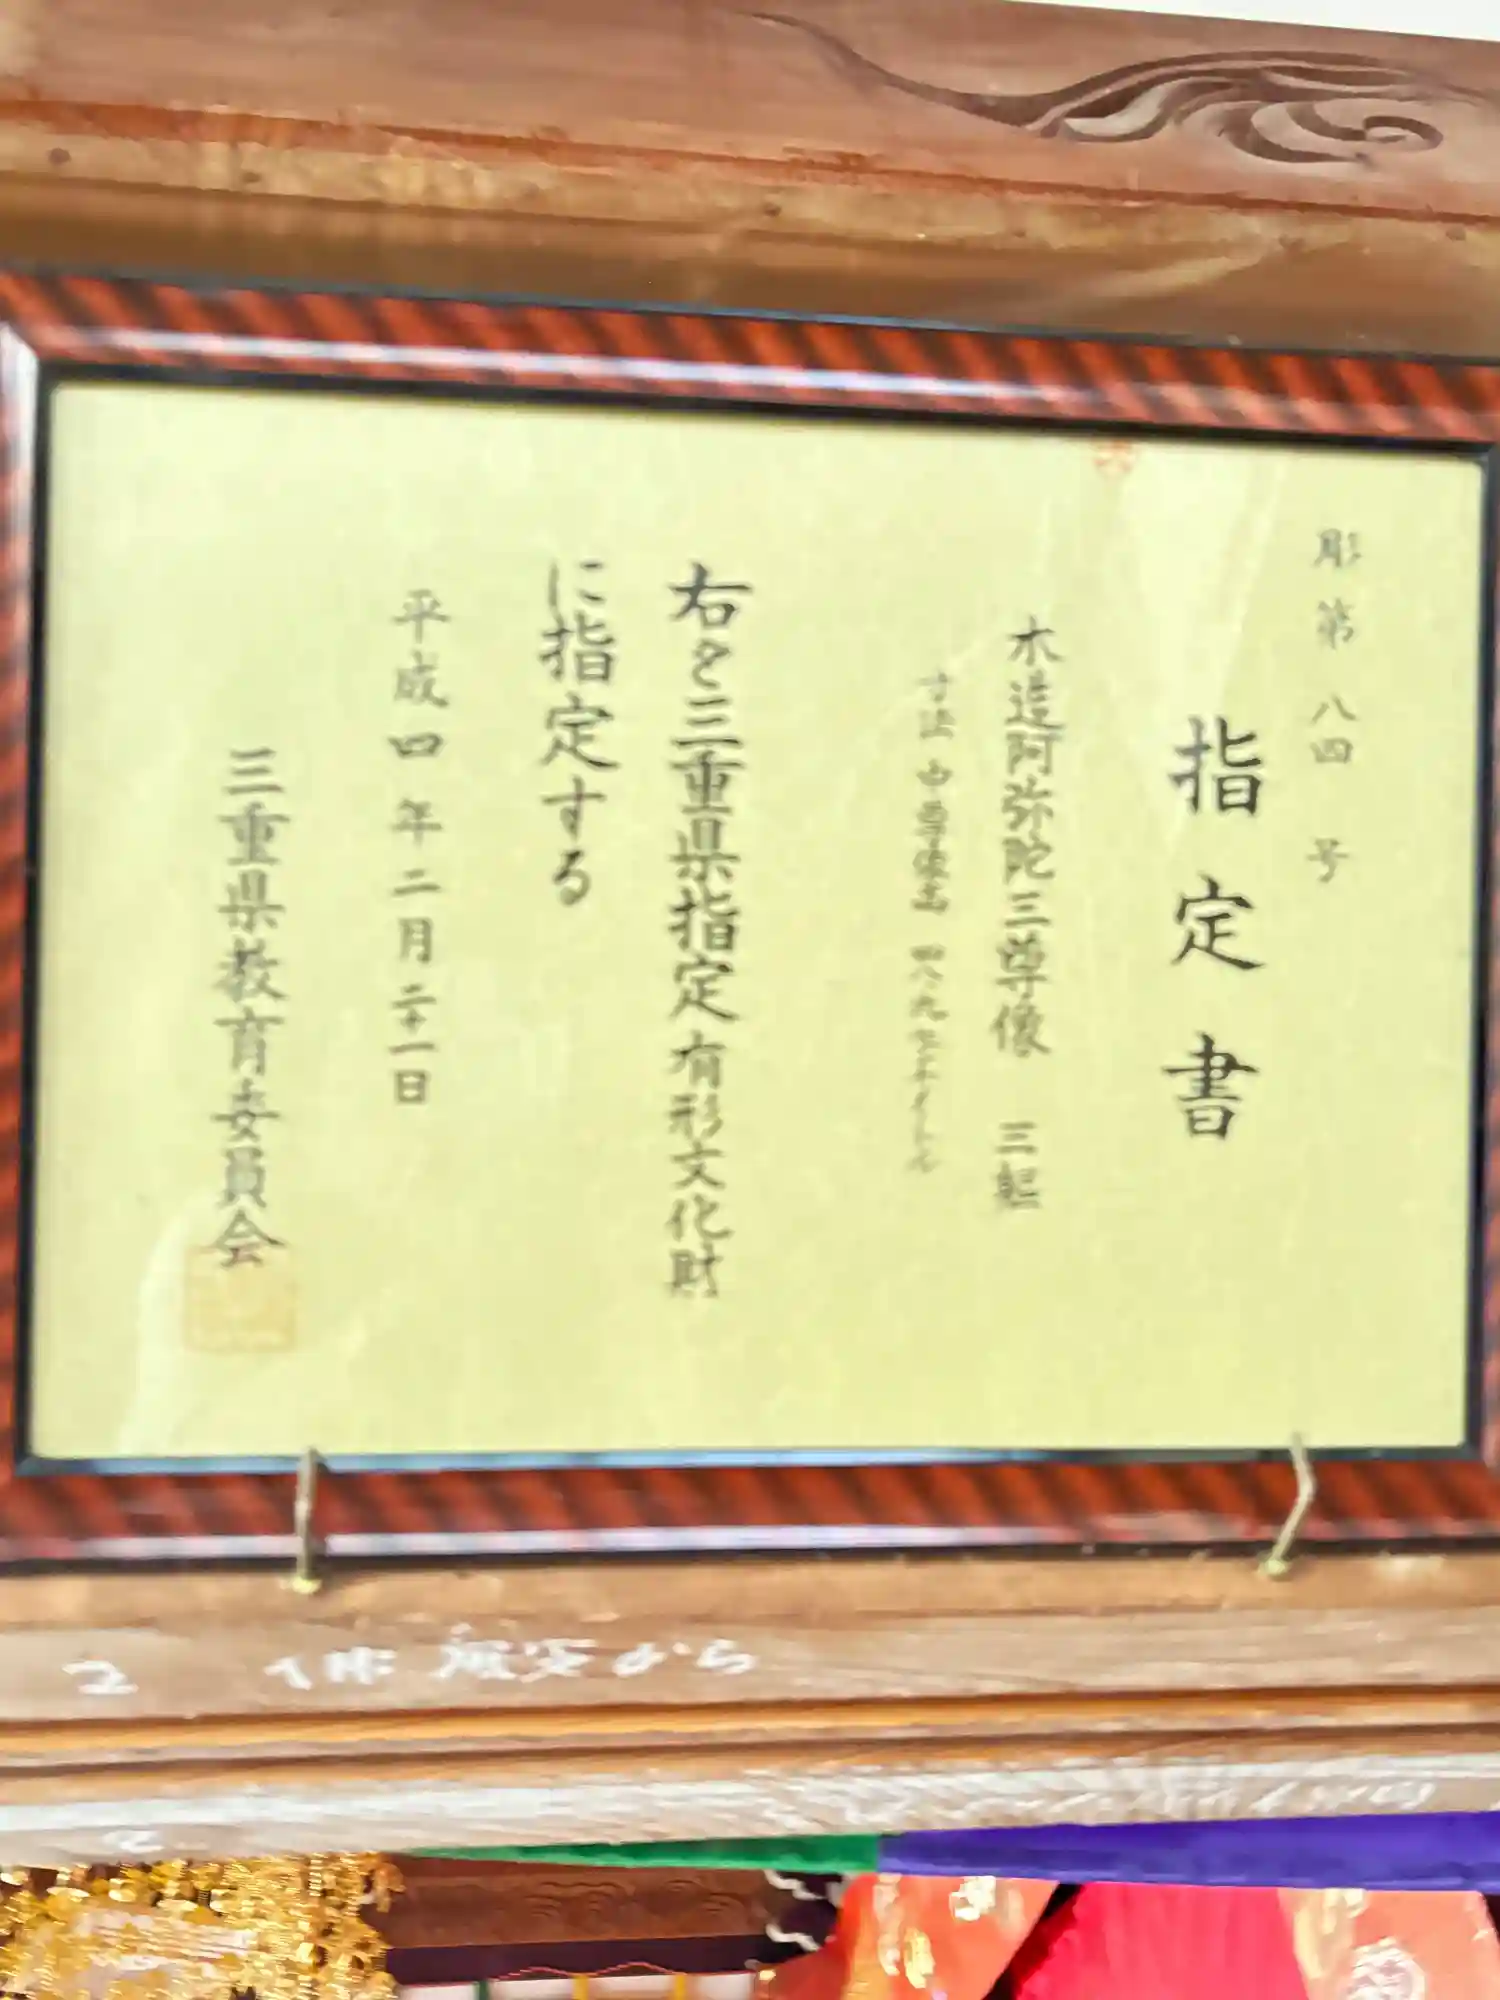 彫第八四号
指定書
木造阿弥陀三尊像 三躯
寸法 中尊像高 四八・九センチメートル
右を三重県指定有形文化財
に指定する
平成四年二月二十一日
三重県教育委員会
2
から